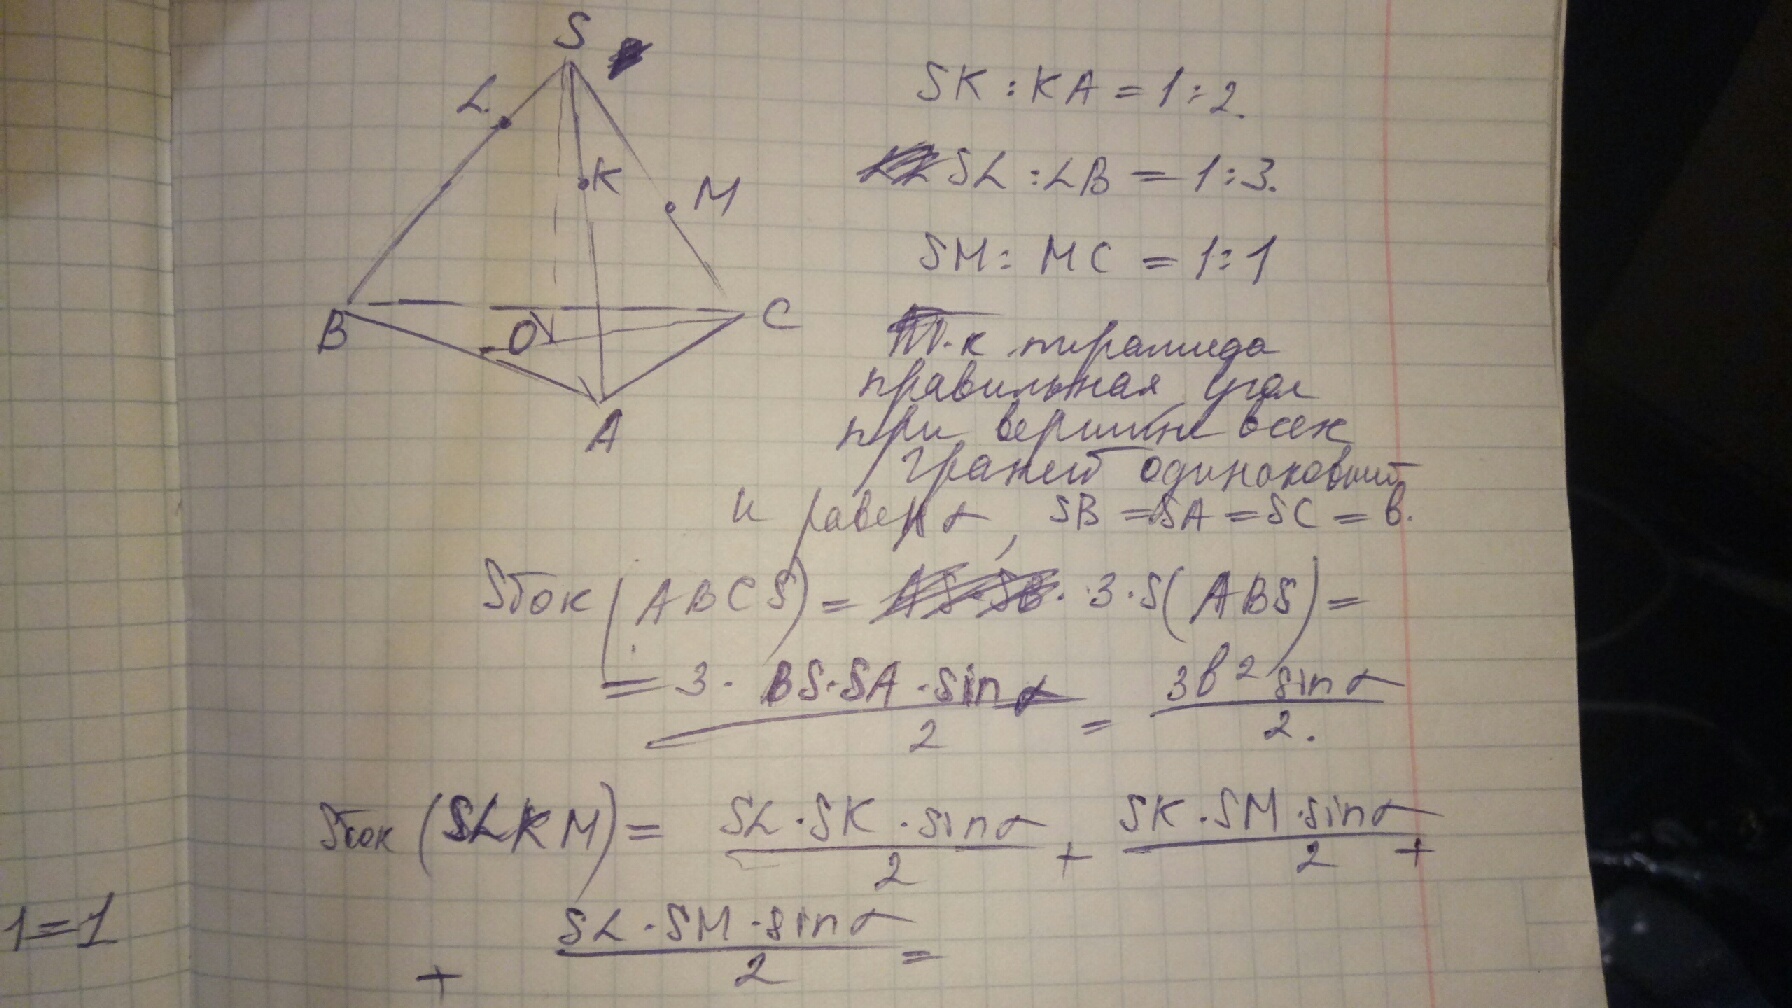 S
L
K
M
B
O
C
A
SK : KA = 1 : 2.
SL : LB = 1 : 3.
SM : MC = 1 : 1
Т.к пирамида
правильная угол
при вершине всех
граней одинаковый
и равен α, SB = SA = SC = в.
Sбок (ABCS) = 3 · S(ABS) =
= 3 · BS·SA·sinα / 2 = 3в² sinα / 2.
Sбок (SLKM) = SL · SK · sinα / 2 + SK · SM · sinα / 2 +
+ SL · SM · sinα / 2 =
1=1